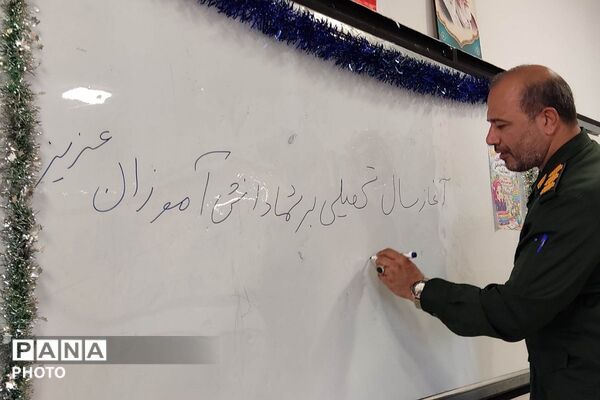 آغاز سال تحصیلی بر شما دانش آموزان عزیز
PANA
PHOTO